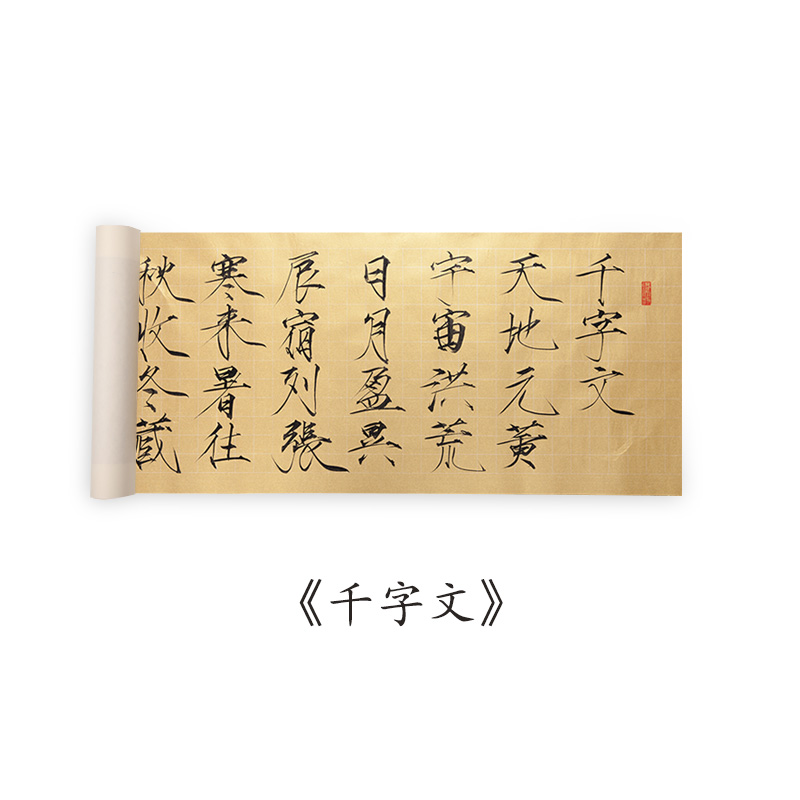 千字文
天地元黄
宇宙洪荒
日月盈昃
辰宿列張
寒来暑往
秋收冬藏
《千字文》